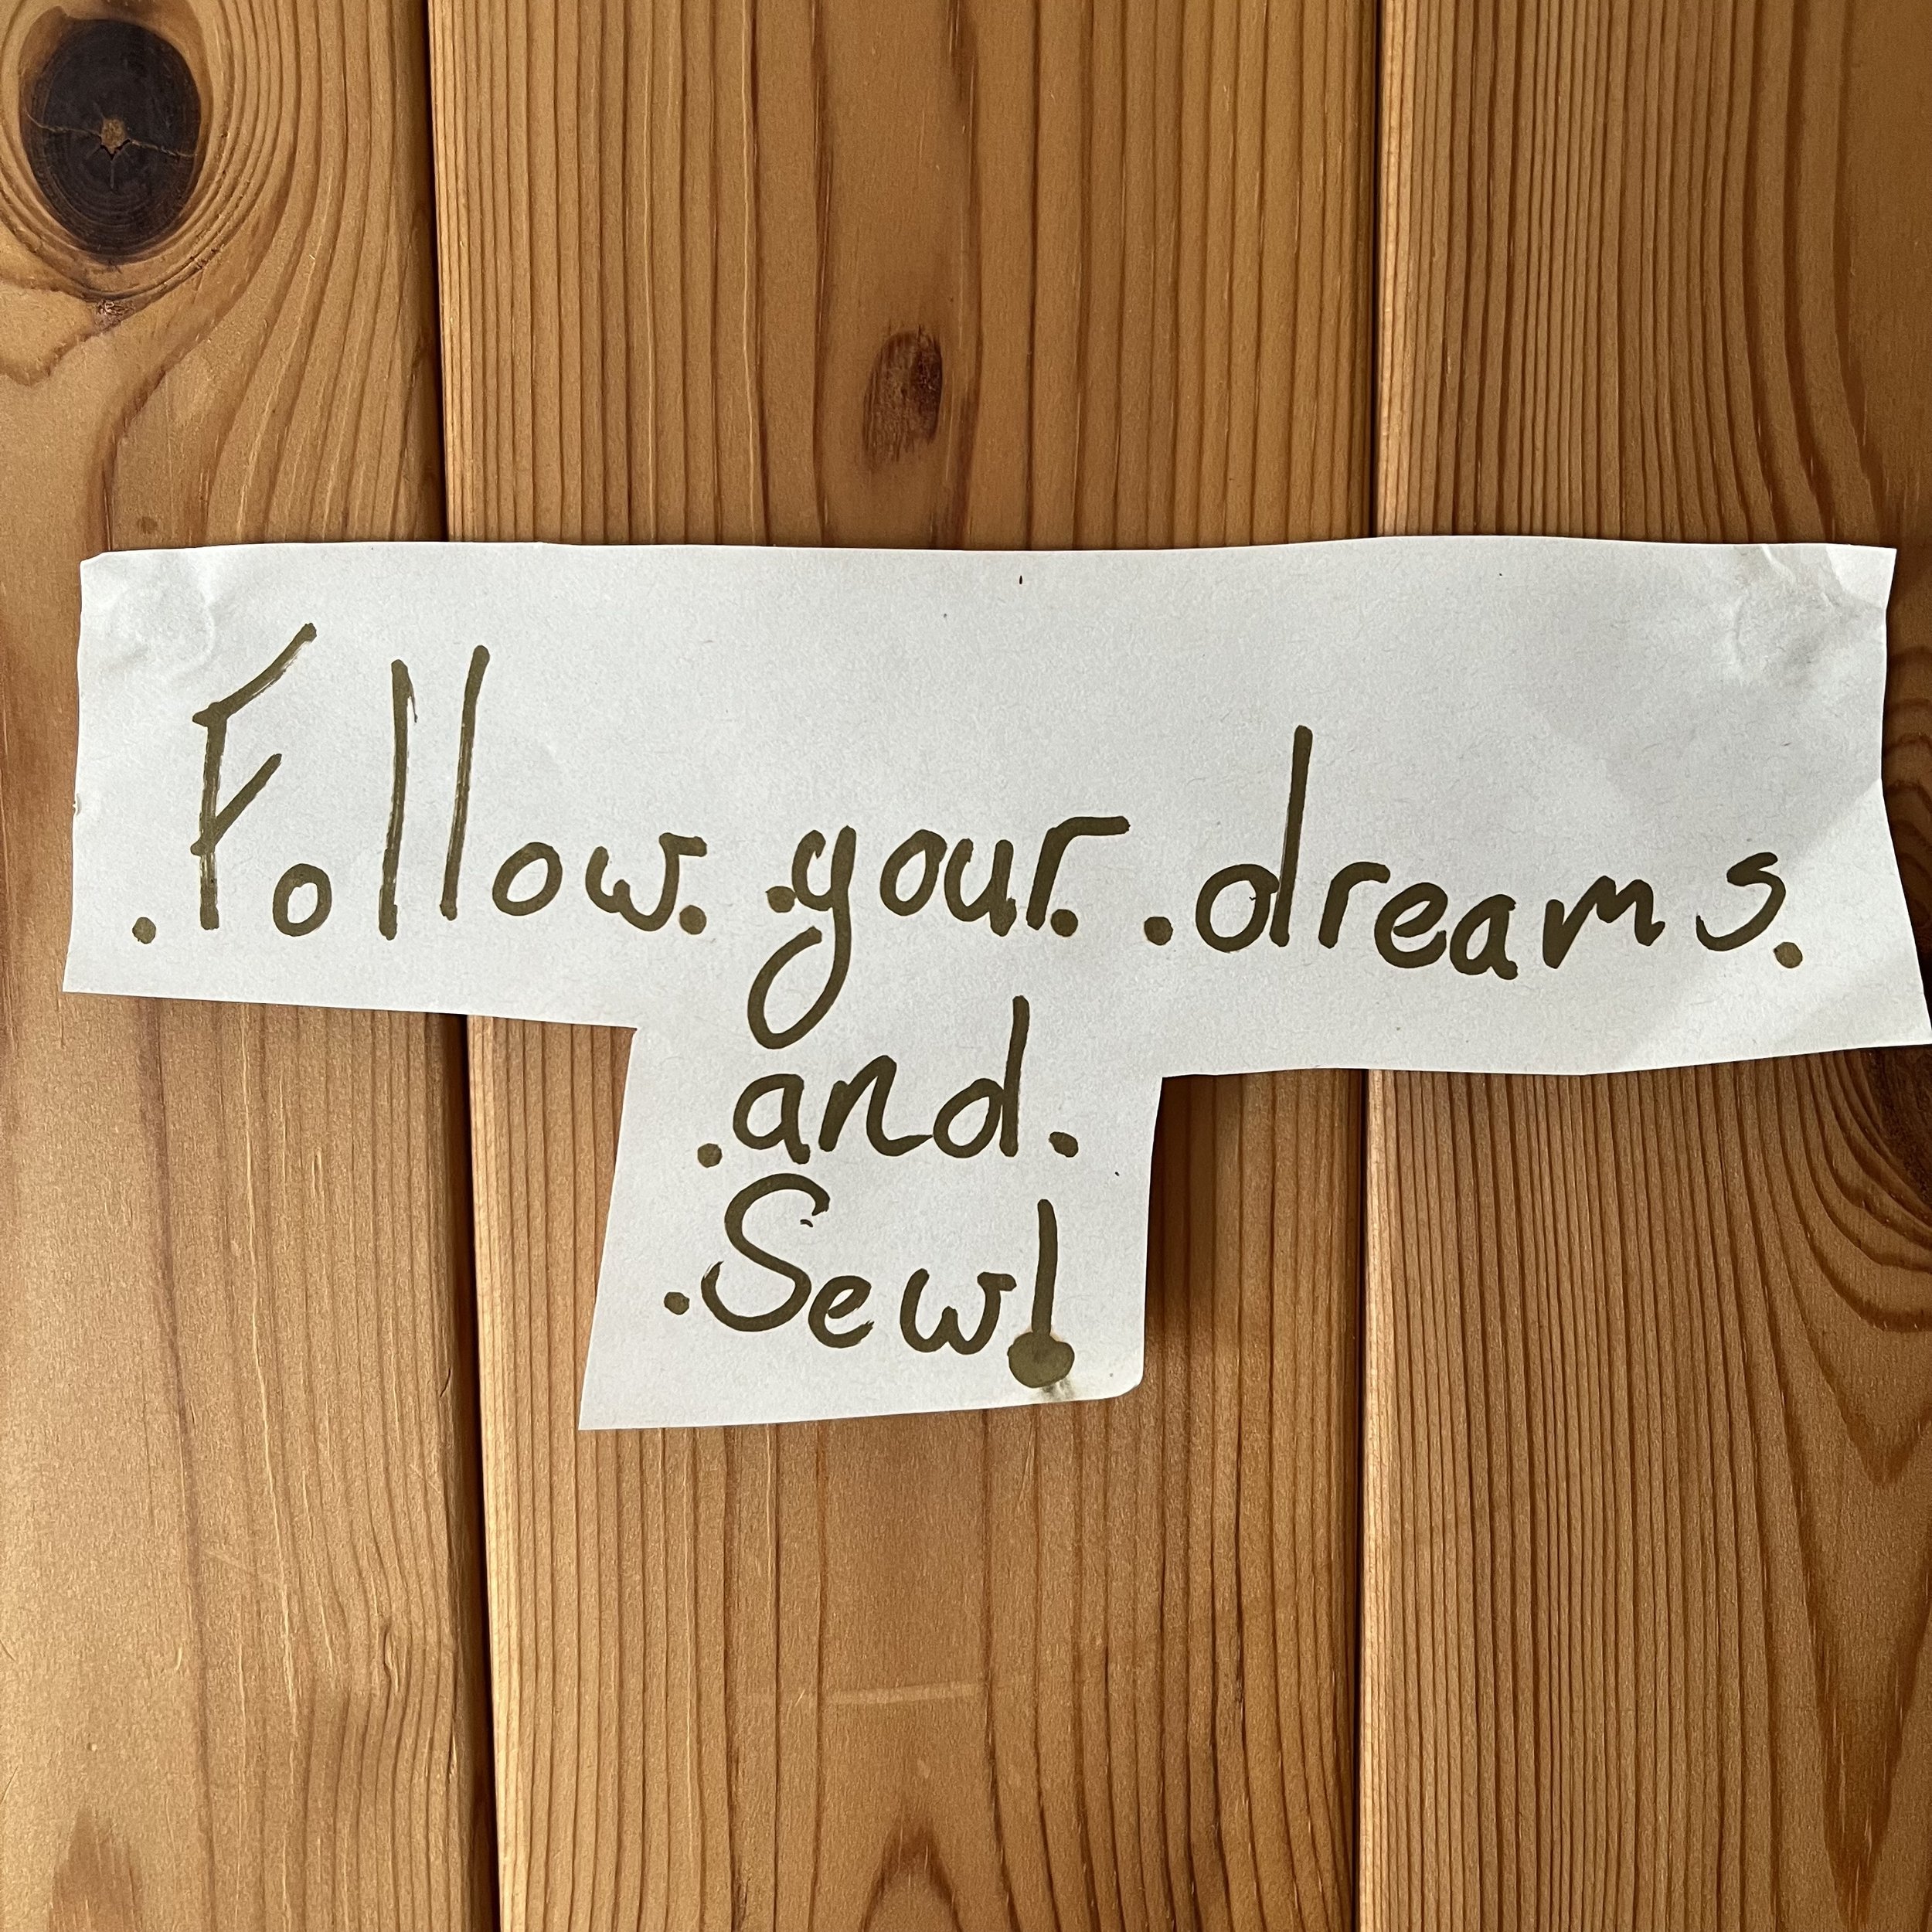 .Follow. .your. .dreams.
.and.
.Sew!